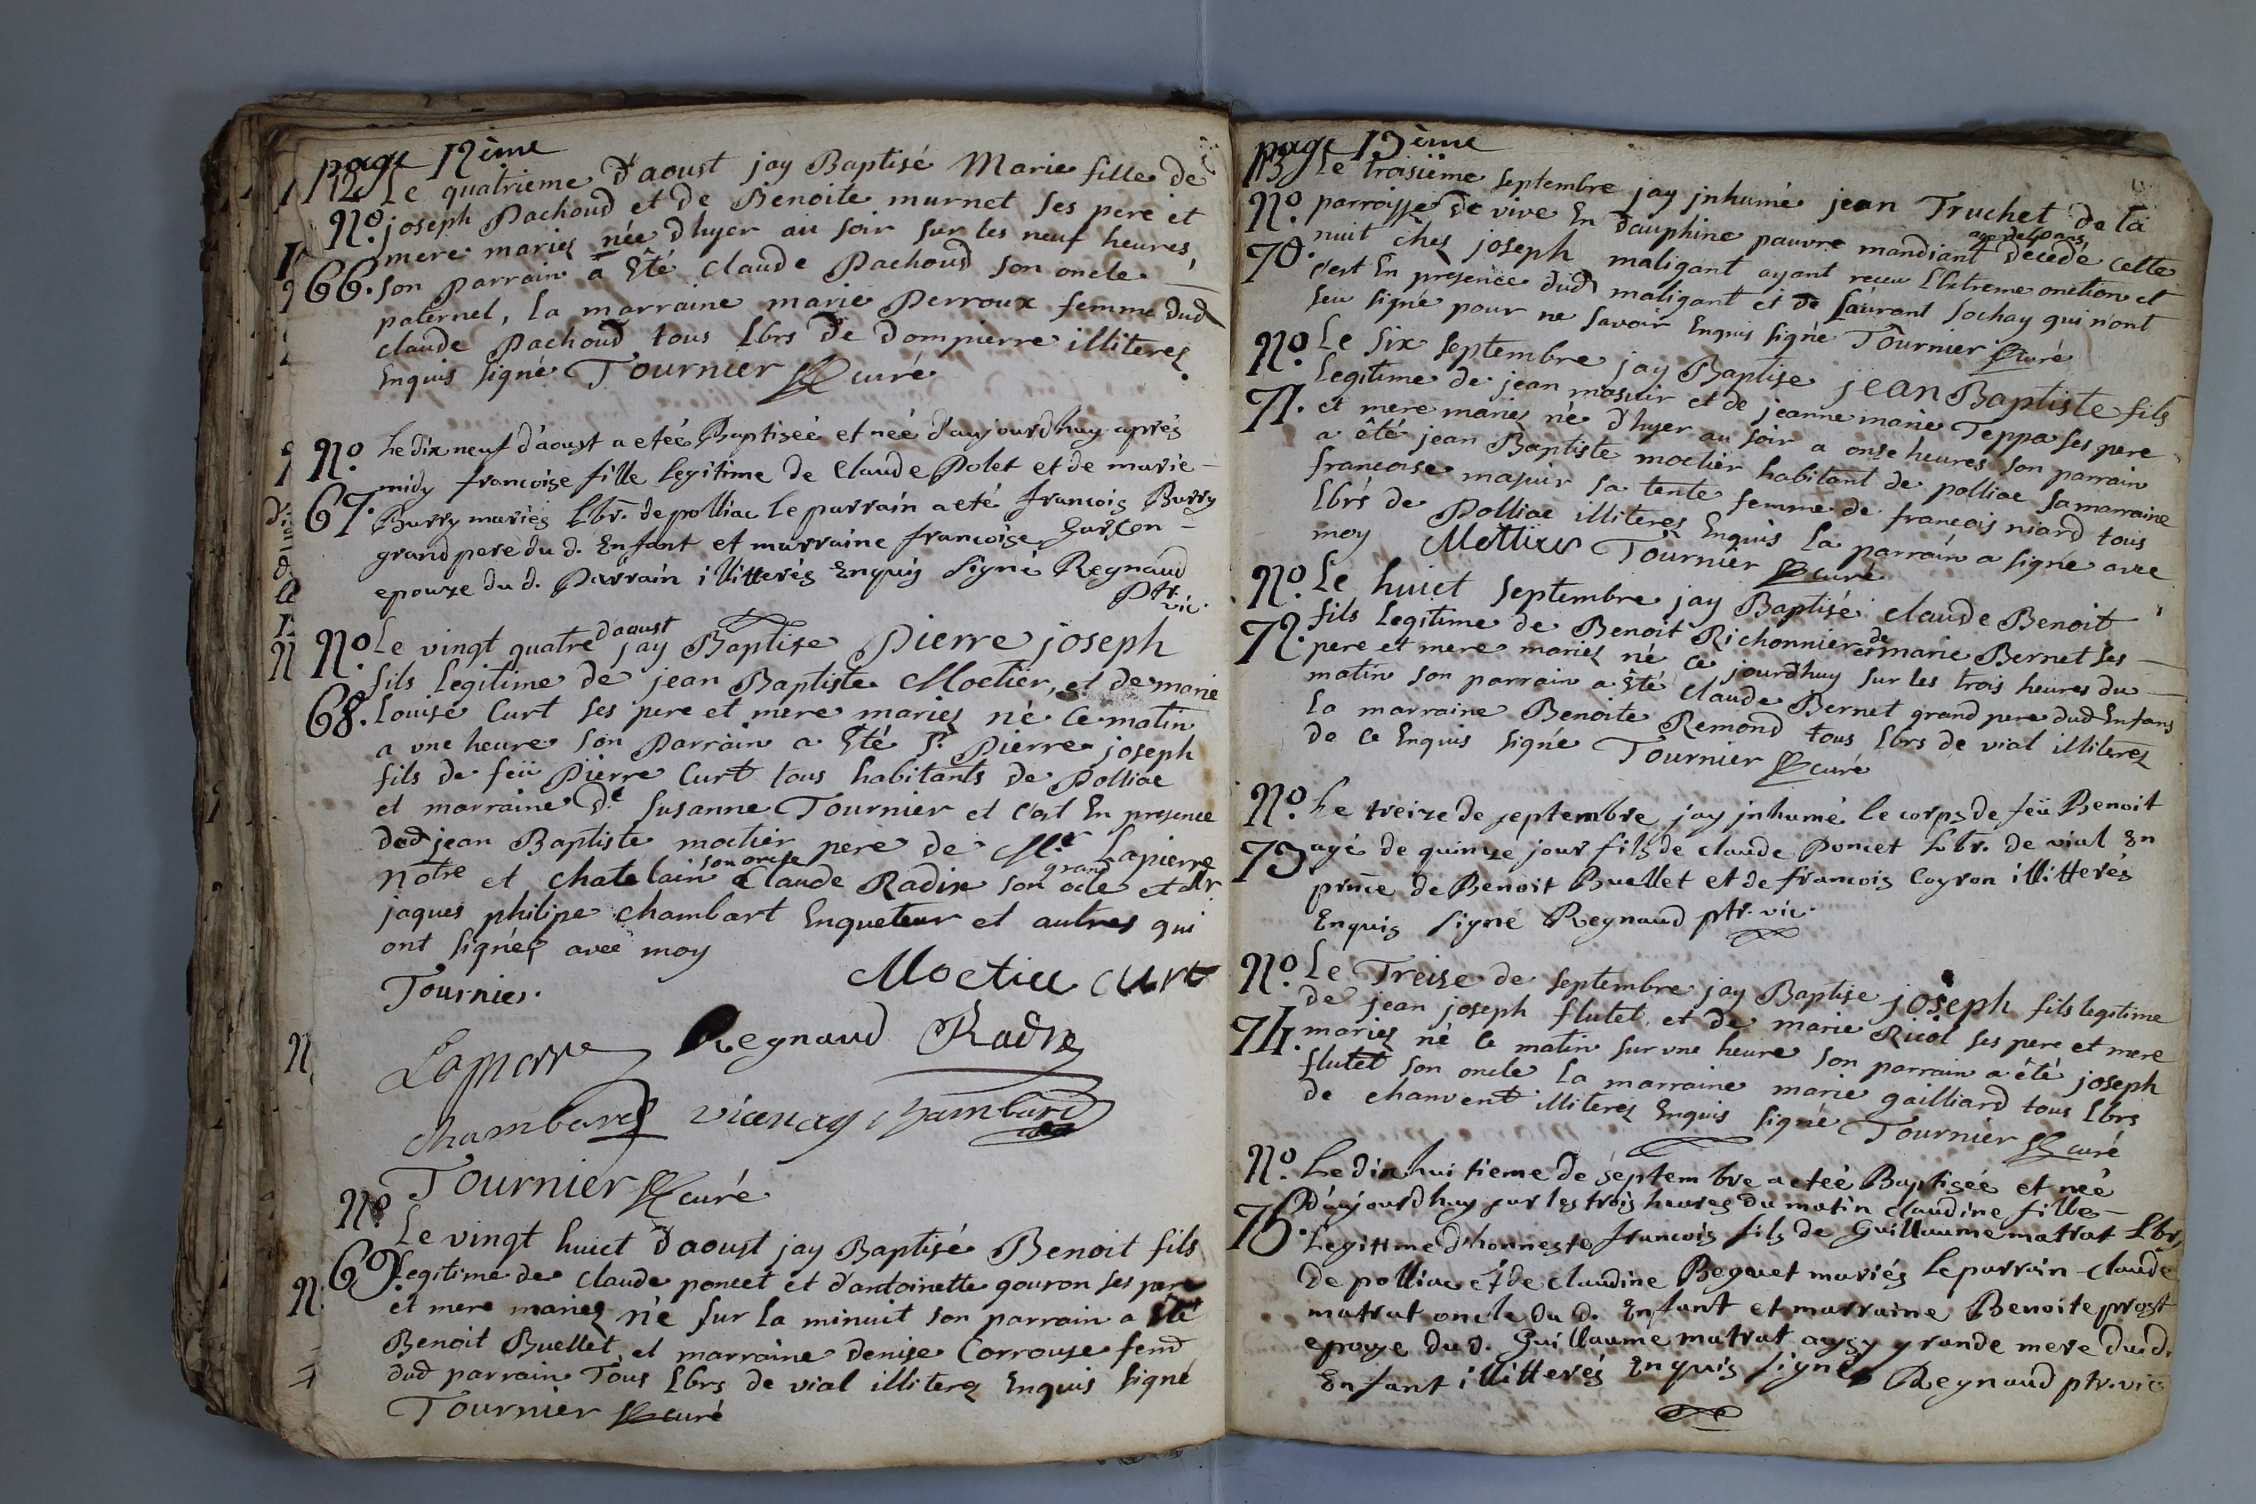 page 12ème
112 Le quatrieme d'aoust jay Baptisé Marie fille de
No. joseph Pachoud et de Benoite murnet ses pere et
mere mariez née d hyer au soir sur les neuf heures,
66. son parrain a Eté claude Pachoud son oncle
paternel, la marraine marie Perroux femme dud
claude Pachoud tous Lbrs de dompierre illiterez
Enquis signé Tournier curé
No. Le dix neuf d'aoust a eteé Baptiseé et neé d'aujourdhuy aprés
midy francoise fille legitime de Claude Polet et de marie
67. Burry mariés Lbr. de polliac le parrain a eté francois Burry
grand pere du d. Enfant et marraine francoise
epouze du d. Parrain illitterés Enquis signé Regnaud
Ptr. vic.
No. Le vingt quatre d'aoust jay Baptise Pierre joseph
fils legitime de jean Baptiste Moctier, et de marie
68. Louise Curt ses pere et mere mariez né ce matin
a vne heure son Parrain a Eté Sr. Pierre joseph
fils de feü Pierre Curt tous habitants de Polliac
et marraine de Susanne Tournier et c'est En presence
dud jean Baptiste moctier pere de Mr. Lapierre
notre et chatelain son oncle Claude Radix son grand ocle et Mr
jaques philipe chambart Enqueteur et autres qui
ont signéz avec moy
Tournier. Moctier Curt
Lapierre Regnaud Radix
chambard vianay chambard
Tournier curé
No. Le vingt huict d'aoust jay Baptisé Benoit fils
69. legitime de claude poncet et d'antoinette gouron ses pere
et mere mariez né sur la minuit son parrain a Eté
Benoit Buellet et marraine denise Corrouze
dud parrain Tous Lbrs de vial illiterez Enquis signé
Tournier curé
page 13ème
113 Le troisiëme septembre jay jnhumé jean Truchet de la
No. parroisse de vive En dauphine pauvre mandiant decedé cette
70. nuit chez joseph maligant ayant receu l'Extreme onction et
c'est En presence dud maligant et de Laurant Sochay qui n'ont
sceu signé pour ne savoir Enquis signé Tournier curé
No. Le six septembre jay Baptise jean Baptiste fils
71. legitime de jean masuir et de jeanne marie Teppa ses pere
et mere mariez né d'hyer au soir a onse heures son parrain
a été jean Baptiste moctier habitant de polliac sa marraine
francoise majuir sa tente femme de francois niard tous
Lbrs de Polliac illiterez Enquis la parrain a signé avec
moy Mottier Tournier curé
No. Le huict septembre jay Baptisé claude Benoit
72. fils legitime de Benoit Richonnier et de marie Bernet ses
pere et mere mariez né ce jourdhuy sur les trois heures du
matin son parrain a Eté claude Bernet grand pere dud Enfans
la marraine Benoite Remond tous Lbrs de vial illiterez
de ce Enquis signé Tournier curé
No. Le treize de septembre jay jnhumé le corps de feü Benoit
73. agé de quinze jour fils de claude Poncet Lbr. de vial En
prnce de Benoit Buellet et de francois Coyron illitterés
Enquis signé Regnaud ptr. vic.
No. Le Treise de septembre jay Baptise joseph fils legitime
de jean joseph flutet et de marie Ricol ses pere et mere
74. mariez né ce matin sur vne heure son parrain a été joseph
flutet son oncle la marraine marie gailliard tous Lbrs
de chanvent illiterez Enquis signé Tournier curé
No. Le dix huitieme de septembre a eteé Baptiseé et neé
75. D'aujourdhuy sur les trois heures du matin claudine fille
Legitime d'honneste francois fils de Guillaume matrat Lbr
de polliac et de claudine Beguet mariés le parrain claude
matrat oncle du d. Enfant et marraine Benoite prost
epouze du d. Guillaume matrat aussy grande mere dud.
Enfant illitterés Enquis signé Regnaud ptr. vic